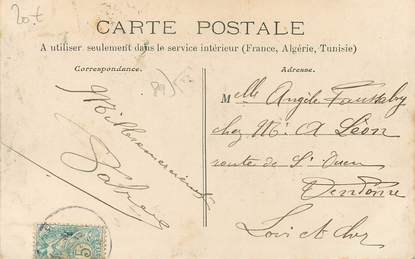 20t
CARTE POSTALE
A utiliser seulement dans le service intérieur (France, Algérie, Tunisie)
Correspondance.
Adresse.
Mille remerciements
Melle Angèle
chez Mr A Léon
route de St Ouen
Vendôme
Loir et Cher
5